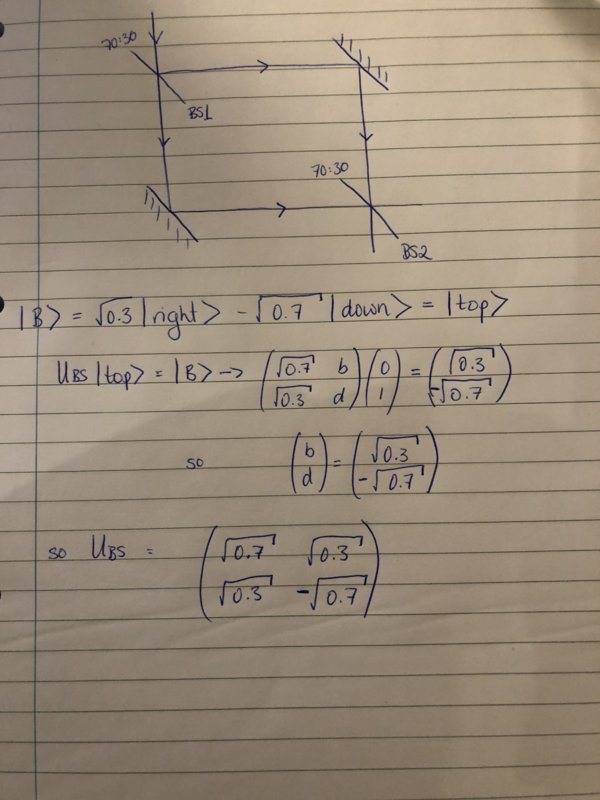 70:30
BS1
70:30
BS2
|B⟩ = √0.3 |right⟩ - √0.7 |down⟩ = |top⟩
U_BS |top⟩ = |B⟩ → (√0.7 b) (0) = (√0.3)
(√0.3 d) (1) (-√0.7)
so (b) = (√0.3)
(d) (-√0.7)
so U_BS = (√0.7 √0.3)
(√0.3 -√0.7)